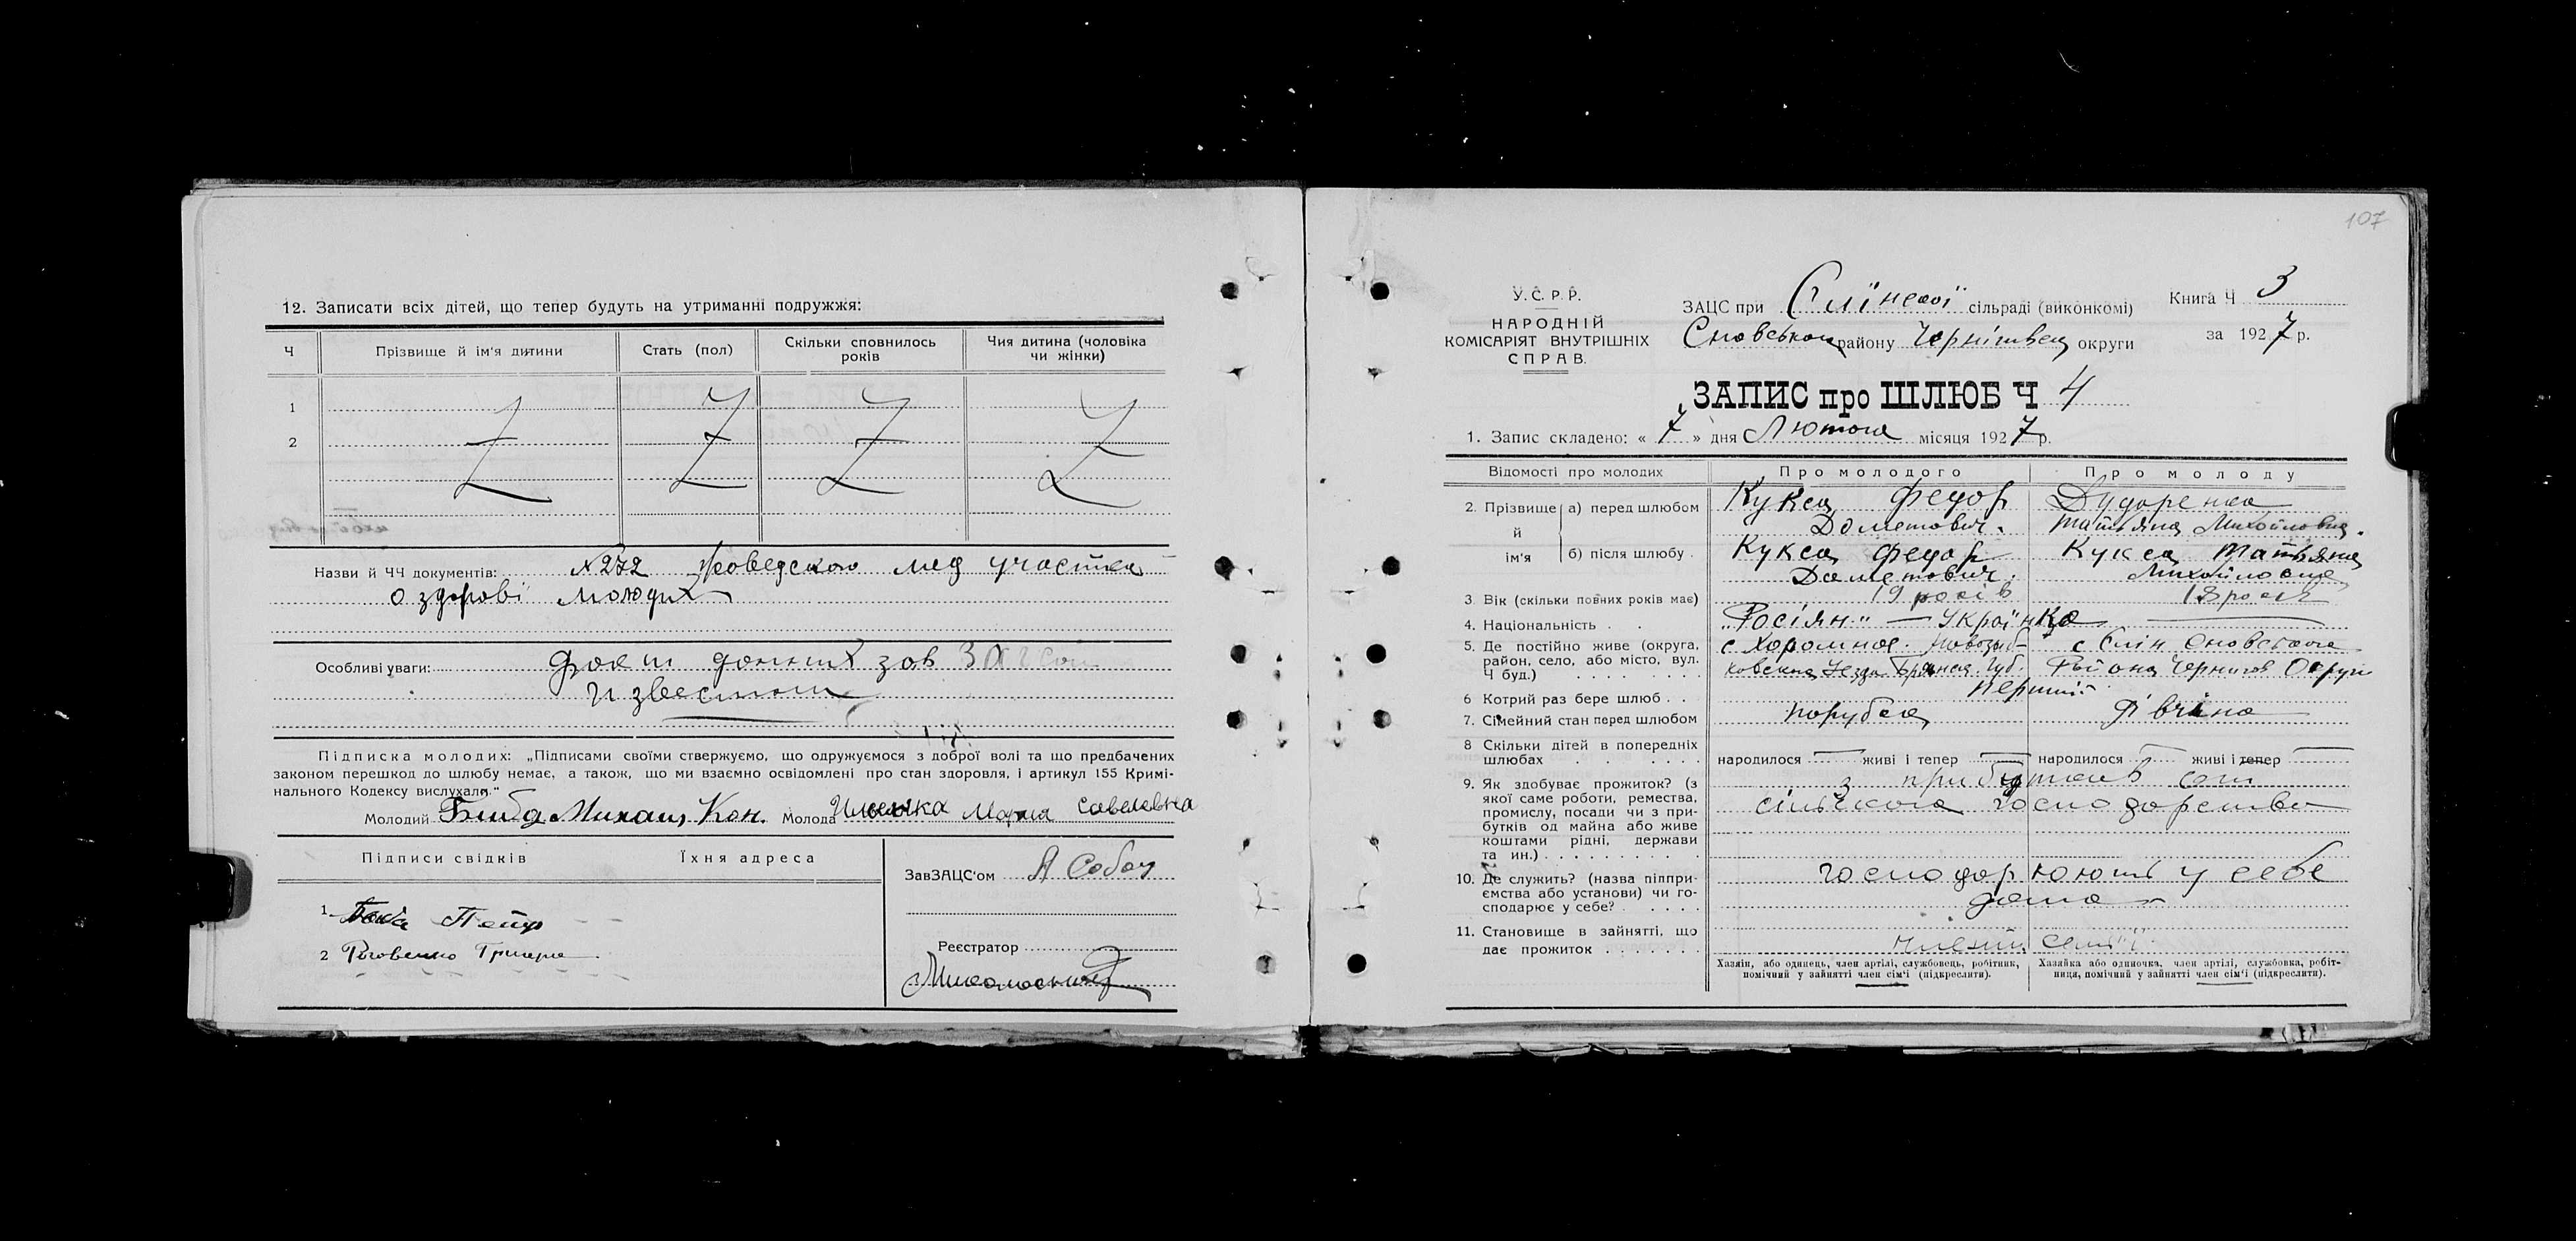 12. Записати всіх дітей, що тепер будуть на утриманні подружжя:
Ч Прізвище й ім'я дитини Стать (пол) Скільки сповнилось років Чия дитина (чоловіка чи жінки)
1
2
Назви й ЧЧ документів: №272 мед участка
о здорові молодих
Особливі уваги: зав ЗАГСом
Підписка молодих: „Підписами своїми стверджуємо, що одружуємося з доброї волі та що предбачених
законом перешкод до шлюбу немає, а також, що ми взаємно освідомлені про стан здоровля, і артикул 155 Кримі-
нального Кодексу вислухали."
Молодий Михаил Кон. Молода Мария Савелевна
Підписи свідків Їхня адреса
1. Петр
2
ЗавЗАЦС'ом
Реєстратор
107
У.С.Р.Р.
НАРОДНІЙ
КОМІСАРІЯТ ВНУТРІШНІХ
СПРАВ.
ЗАЦС при Єлінської сільраді (виконкомі)
Сновського району Чернігівсц округи
Книга Ч 3
за 1927 р.
ЗАПИС про ШЛЮБ Ч 4
1. Запис складено: « 7 » дня Лютого місяця 1927 р.
Відомості про молодих Про молодого Про молоду
2. Прізвище й ім'я
а) перед шлюбом Кукса Федор Дударенка
Дометович. Татьяна Михойловна.
б) після шлюбу Кукса Федор Кукса Татьяна
Дометович. Михойловна
3. Вік (скільки повних років має) 19 років 18 років
4. Національність . . „Росіян" — Українка
5. Де постійно живе (округа, район, село, або місто, вул. Ч буд.)
с Хоромное Новозыб- с Єлін Сновського
ковского Уезда Брянск. Губ. Района Чернигов Округи
6 Котрий раз бере шлюб . . перший
7. Сімейний стан перед шлюбом парубок дівчина
8 Скільки дітей в попередніх шлюбах
народилося — живі і тепер — народилося — живі і тепер —
9. Як здобуває прожиток? (з якої саме роботи, ремества, промислу, посади чи з при-бутків од майна або живе коштами рідні, держави та ин.)
з прибутков
сільского господарства
10. Де служить? (назва підпри-ємства або установи) чи го-сподарює у себе?
господарюють у себе
дома
11. Становище в зайнятті, що дає прожиток
члени семї
Хазяін, або одинець, член артілі, службовець, робітник, помічний у зайнятті член сім'ї (підкреслити).
Хазяйка або одиночка, член артілі, службовка, робіт-ниця, помічний у зайнятті член сім'ї (підкреслити).